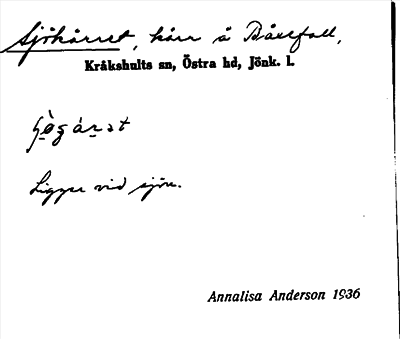 Sjökärret, kärr å Båxefall,
Kråkshults sn, Östra hd, Jönk. l.
Ligger vid sjön.
Annalisa Anderson 1936